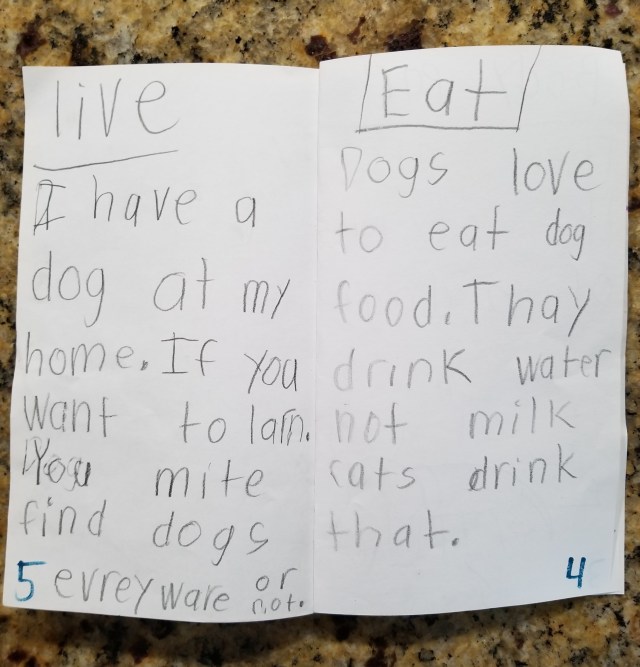 live
I have a
dog at my
home. If you
want to larn.
You mite
find dogs
evrey ware or
not.
5
Eat
Dogs love
to eat dog
food. Thay
drink water
not milk
cats drink
that.
4